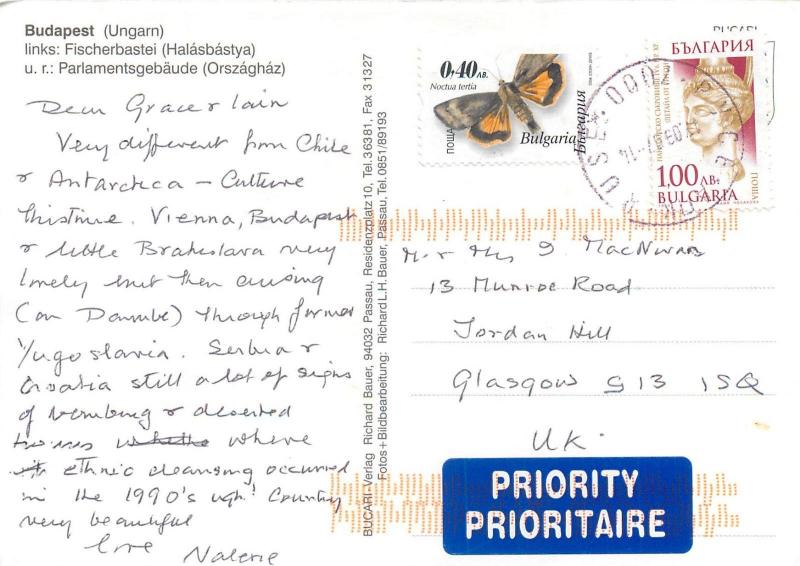 Budapest (Ungarn)
links: Fischerbastei (Halásbástya)
u. r.: Parlamentsgebäude (Országház)
Dear Grace & Iain
Very different from Chile
& Antarctica – Culture
thistime. Vienna, Budapest
& little Bratislava very
lovely but then cruising
(on Danube) through former
Yugoslavia. Serbia &
Croatia still a lot of signs
of bombing & deserted
towns where
ethnic cleansing occurred
in the 1990's ugh! Country
very beautiful
love Valerie
BUCARI-Verlag Richard Bauer, 94032 Passau, Residenzplatz 10, Tel.36381, Fax 31327
Fotos+Bildbearbeitung: Richard L.H. Bauer, Passau, Tel.0851/89193
0,40 лв.
Noctua tertia
ПОЩА
Bulgaria
България
БЪЛГАРИЯ
1,00 ЛВ.
BULGARIA
ПОЩА
Mr & Mrs I. MacNiven
13 Munroe Road
Jordan Hill
Glasgow G13 1SQ
UK.
PRIORITY
PRIORITAIRE